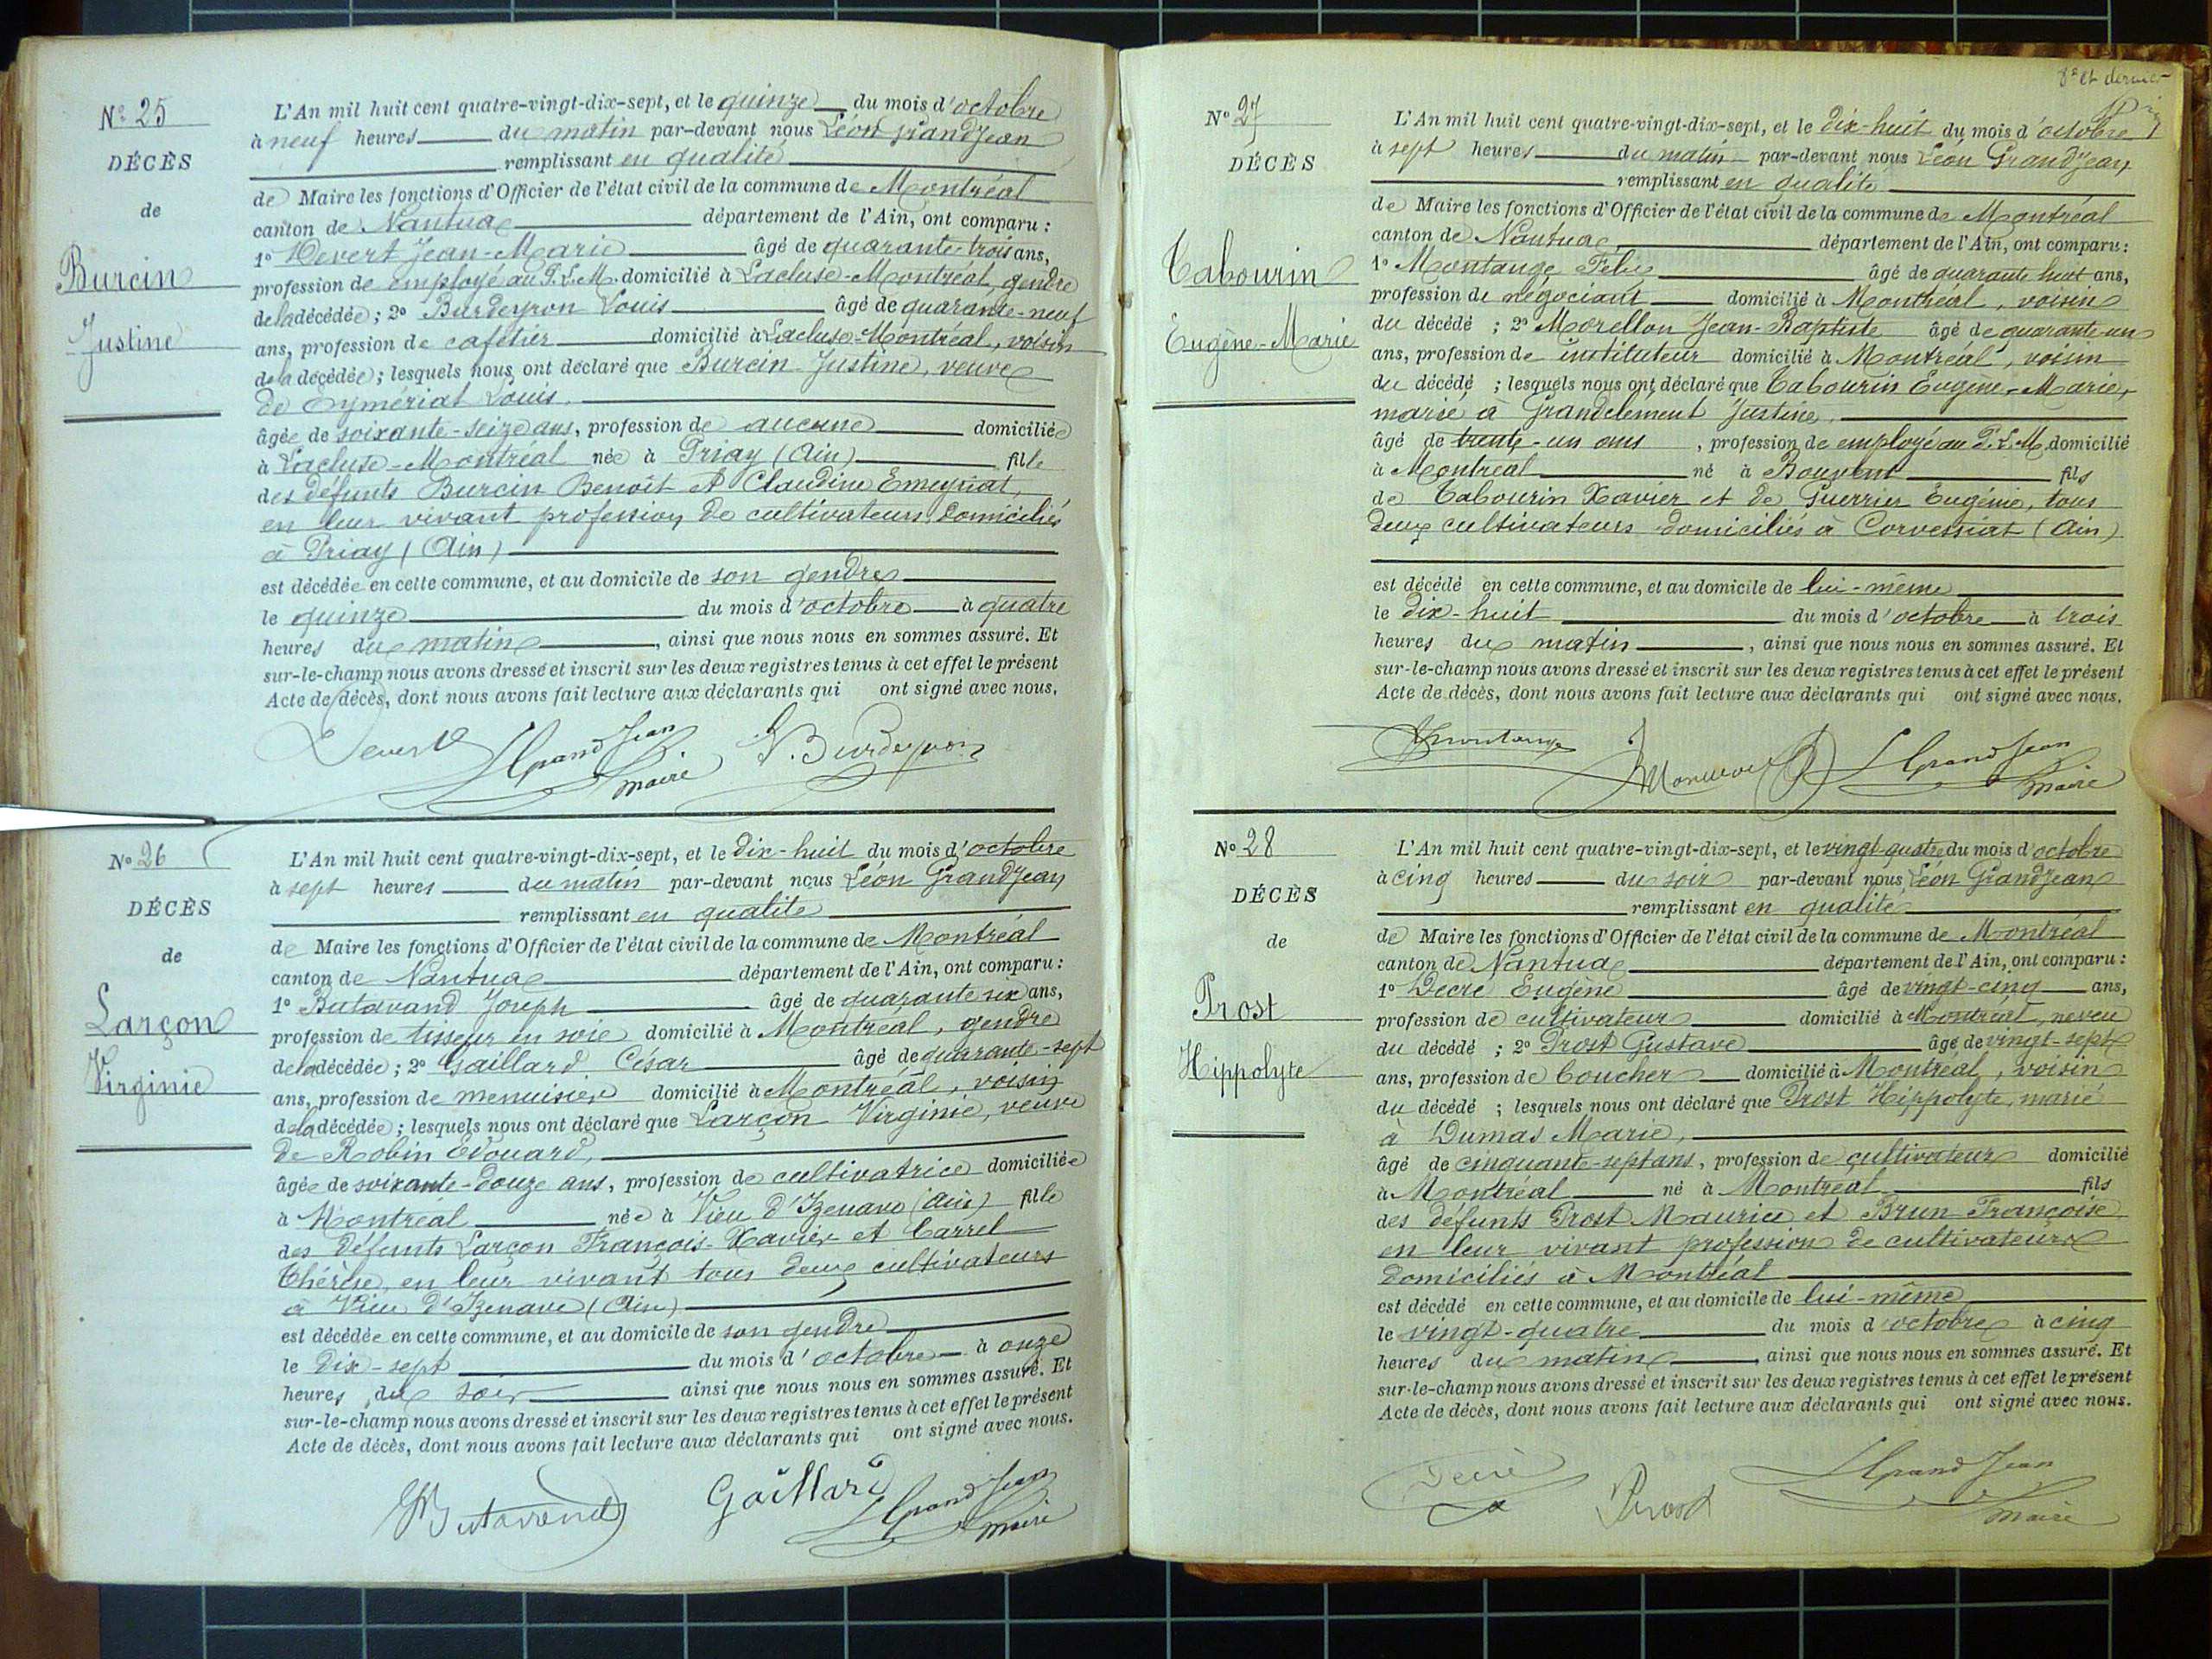 Nº 25
DÉCÈS
de
Burcin
Justine
L'An mil huit cent quatre-vingt-dix-sept, et le quinze du mois d'octobre
à neuf heures du matin par-devant nous Léon Grandjean
remplissant en qualité
de Maire les fonctions d'Officier de l'état civil de la commune de Montréal
canton de Nantua département de l'Ain, ont comparu :
1º Devert Jean-Marie âgé de quarante-trois ans,
profession de employé au P.L.M. domicilié à Lacluse-Montréal, gendre
de la décédée ; 2º Burdeyron Louis âgé de quarante-neuf
ans, profession de cafetier domicilié à Lacluse-Montréal, voisin
de la décédée ; lesquels nous ont déclaré que Burcin Justine, veuve
de Eymériat Louis,
âgée de soixante-seize ans, profession de aucune domiciliée
à Lacluse-Montréal née à Priay (Ain) fille
des défunts Burcin Benoît et Claudine Emeyriat,
en leur vivant profession de cultivateurs domiciliés
à Priay (Ain)
est décédée en cette commune, et au domicile de son gendre
le quinze du mois d'octobre à quatre
heures du matin, ainsi que nous nous en sommes assuré. Et
sur-le-champ nous avons dressé et inscrit sur les deux registres tenus à cet effet le présent
Acte de décès, dont nous avons fait lecture aux déclarants qui ont signé avec nous.
Devert LGrandJean L. Burdeyron
maire
Nº 26
DÉCÈS
de
Larçon
Virginie
L'An mil huit cent quatre-vingt-dix-sept, et le dix-huit du mois d'octobre
à sept heures du matin par-devant nous Léon Grandjean
remplissant en qualité
de Maire les fonctions d'Officier de l'état civil de la commune de Montréal
canton de Nantua département de l'Ain, ont comparu :
1º Butavand Joseph âgé de quarante six ans,
profession de tisseur en soie domicilié à Montréal, gendre
de la décédée ; 2º Gaillard César âgé de quarante-sept
ans, profession de menuisier domicilié à Montréal, voisin
de la décédée ; lesquels nous ont déclaré que Larçon Virginie, veuve
de Robin Edouard,
âgée de soixante-douze ans, profession de cultivatrice domiciliée
à Montréal née à Vieu d'Izenave (Ain) fille
des défunts Larçon François-Xavier et Carrel
Thérèse, en leur vivant tous deux cultivateurs
à Vieu d'Izenave (Ain)
est décédée en cette commune, et au domicile de son gendre
le dix-sept du mois d'octobre à onze
heures du soir ainsi que nous nous en sommes assuré. Et
sur-le-champ nous avons dressé et inscrit sur les deux registres tenus à cet effet le présent
Acte de décès, dont nous avons fait lecture aux déclarants qui ont signé avec nous.
Butavand Gaillard LGrandJean
maire
8e et dernier
Nº 27
DÉCÈS
Tabourin
Eugène-Marie
L'An mil huit cent quatre-vingt-dix-sept, et le dix-huit du mois d'octobre
à sept heures du matin par-devant nous Léon Grandjean
remplissant en qualité
de Maire les fonctions d'Officier de l'état civil de la commune de Montréal
canton de Nantua département de l'Ain, ont comparu :
1º Montange Félix âgé de quarante huit ans,
profession de négociant domicilié à Montréal, voisin
du décédé ; 2º Morellon Jean-Baptiste âgé de quarante-un
ans, profession de instituteur domicilié à Montréal, voisin
du décédé ; lesquels nous ont déclaré que Tabourin Eugène-Marie,
marié à Grandclément Justine,
âgé de trente-un ans, profession de employé au P.L.M. domicilié
à Montréal né à Bouvent fils
de Tabourin Xavier et de Guerrier Eugénie, tous
deux cultivateurs domiciliés à Corvessiat (Ain)
est décédé en cette commune, et au domicile de lui-même
le dix-huit du mois d'octobre à trois
heures du matin, ainsi que nous nous en sommes assuré. Et
sur-le-champ nous avons dressé et inscrit sur les deux registres tenus à cet effet le présent
Acte de décès, dont nous avons fait lecture aux déclarants qui ont signé avec nous.
Montange LGrandJean
maire
Nº 28
DÉCÈS
de
Prost
Hippolyte
L'An mil huit cent quatre-vingt-dix-sept, et le vingt-quatre du mois d'octobre
à cinq heures du soir par-devant nous Léon Grandjean
remplissant en qualité
de Maire les fonctions d'Officier de l'état civil de la commune de Montréal
canton de Nantua département de l'Ain, ont comparu :
1º Décré Eugène âgé de vingt-cinq ans,
profession de cultivateur domicilié à Montréal, neveu
du décédé ; 2º Prost Gustave âgé de vingt-sept
ans, profession de boucher domicilié à Montréal, voisin
du décédé ; lesquels nous ont déclaré que Prost Hippolyte, marié
à Dumas Marie,
âgé de cinquante-sept ans, profession de cultivateur domicilié
à Montréal né à Montréal fils
des défunts Prost Maurice et Brun Françoise
en leur vivant profession de cultivateurs
domiciliés à Montréal
est décédé en cette commune, et au domicile de lui-même
le vingt-quatre du mois d'octobre à cinq
heures du matin, ainsi que nous nous en sommes assuré. Et
sur-le-champ nous avons dressé et inscrit sur les deux registres tenus à cet effet le présent
Acte de décès, dont nous avons fait lecture aux déclarants qui ont signé avec nous.
Décré Prost LGrandJean
maire